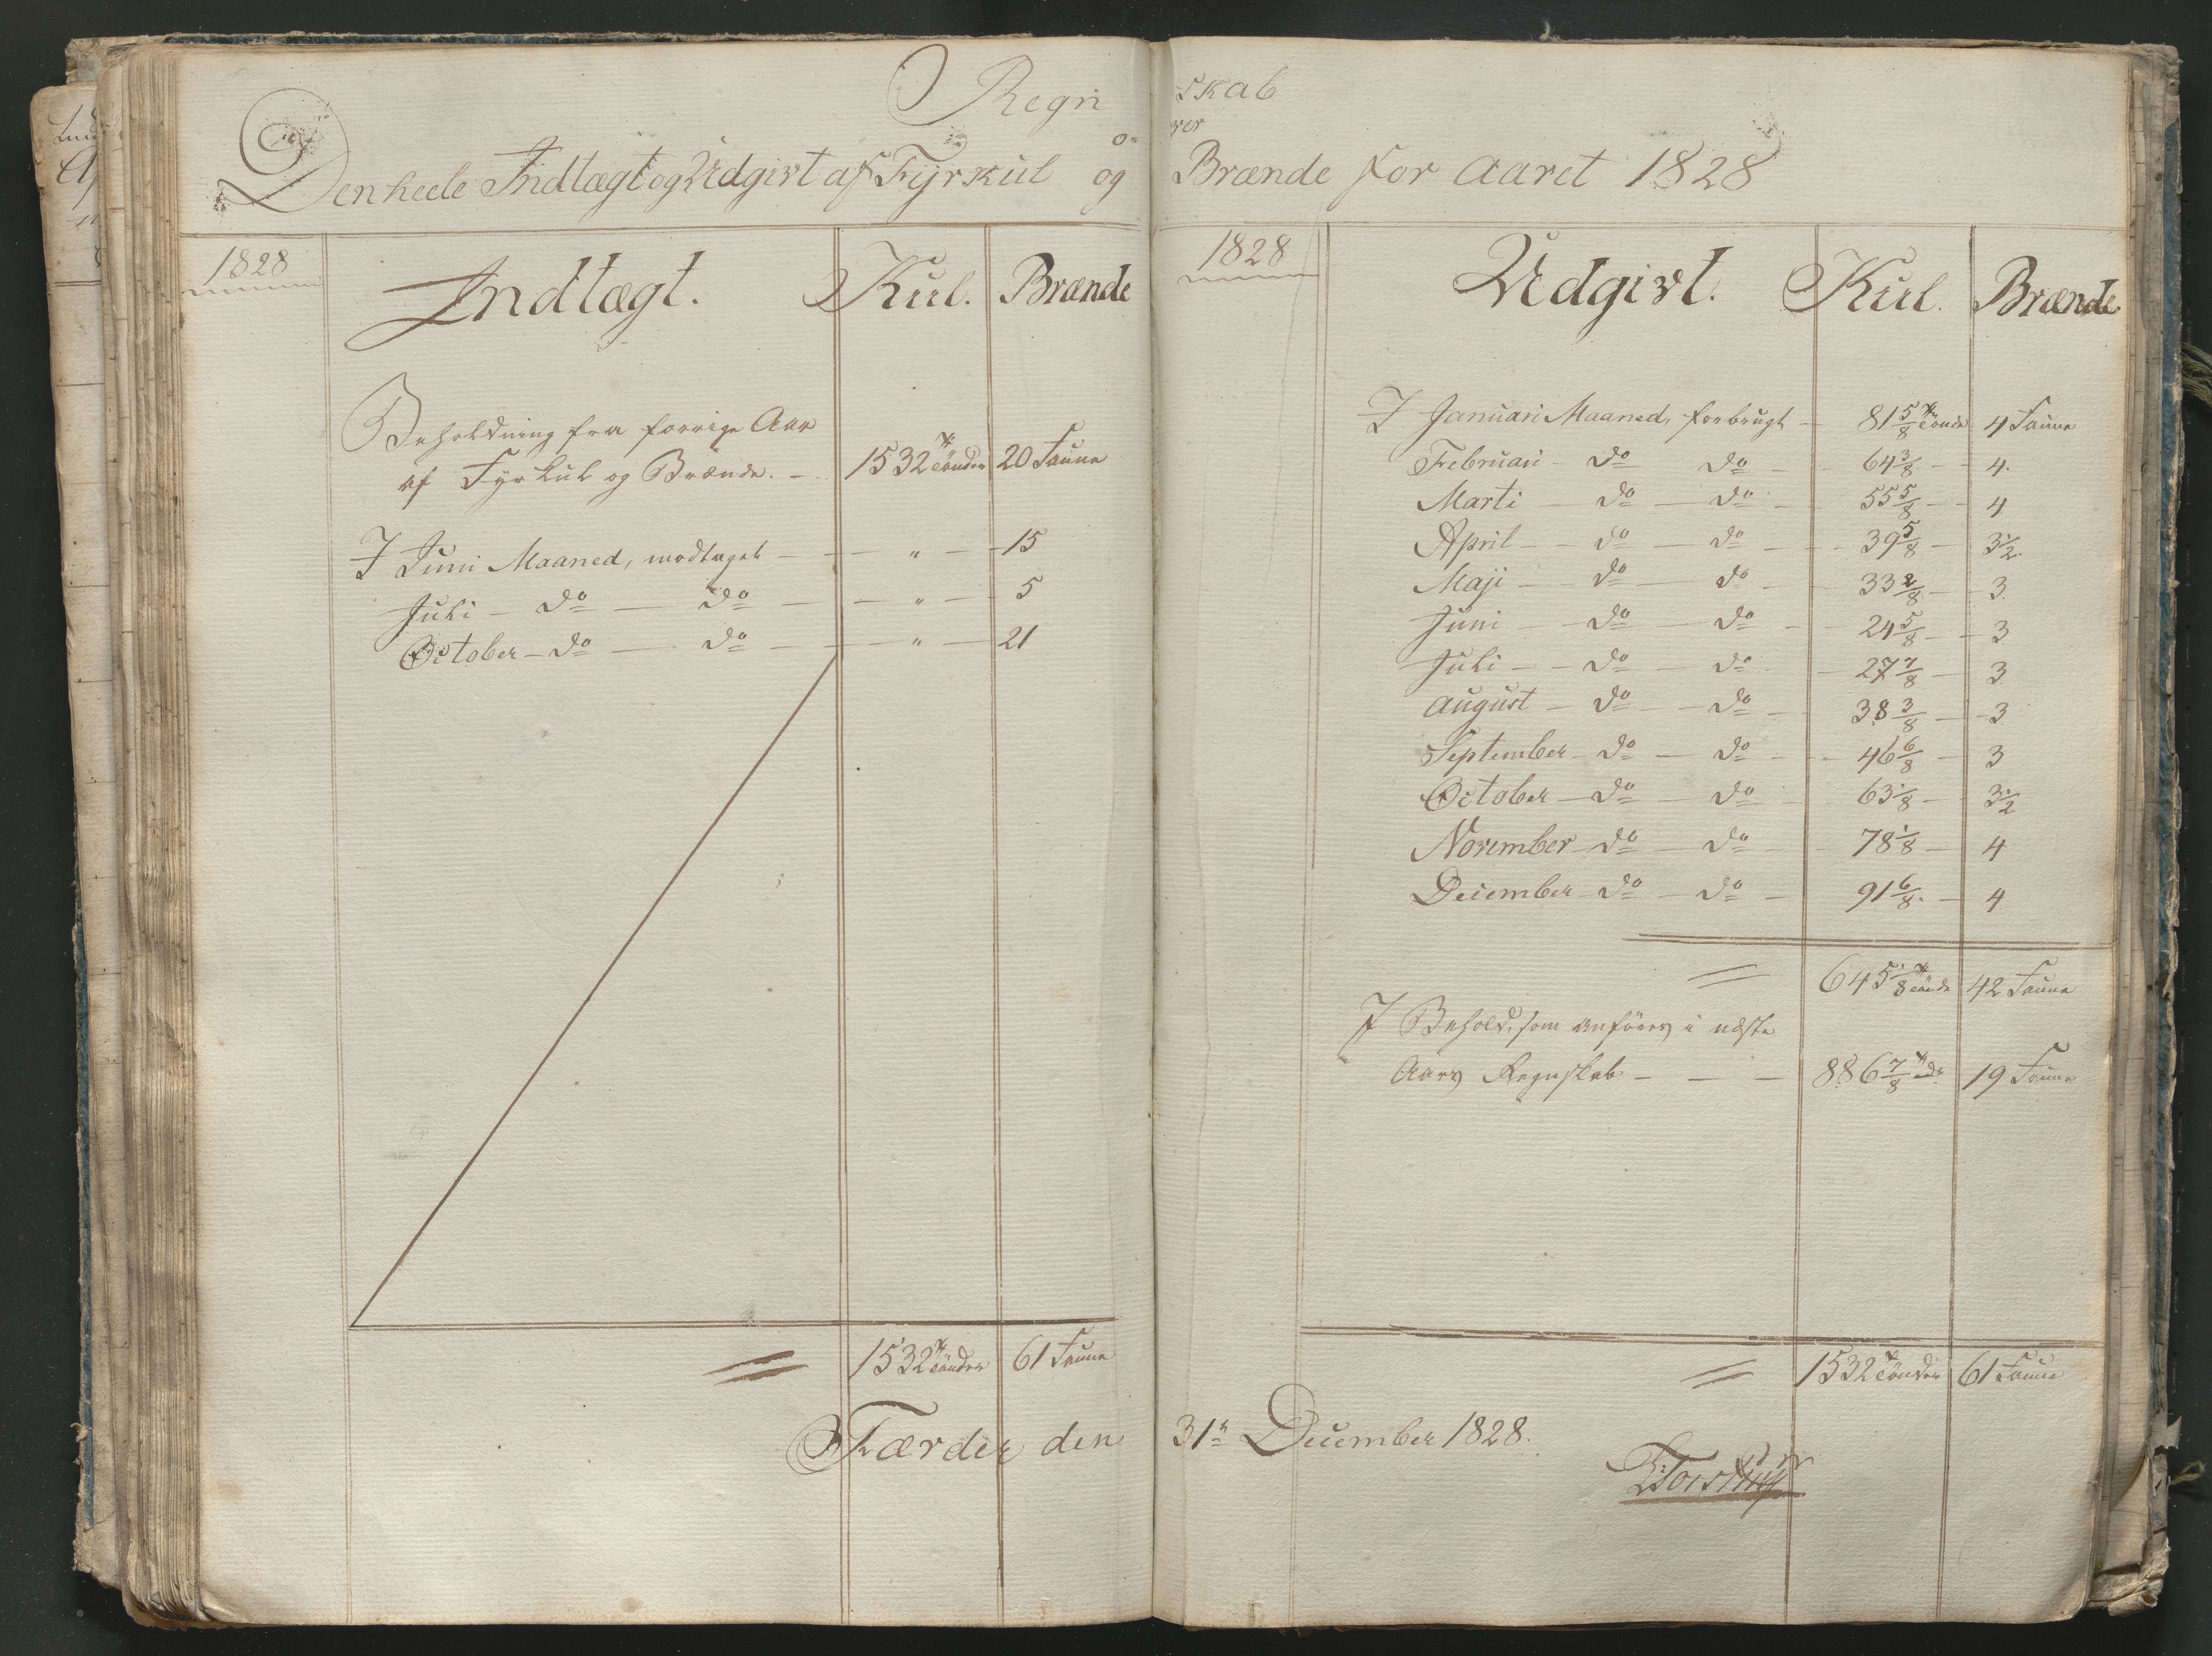 Regnskab
over
Den heele Indtægt og Udgivt af Fyrkul og Brænde for Aaret 1828
1828 Indtægt. Kul. Brænde
Beholdning fra forrige Aar
af Fyrkul og Brænde. 1532 Tønder 20 Faune
I Juni Maaned, modtaget " 15
Juli do do " 5
October do do " 21
1532 Tønder 61 Faune
1828 Udgivt. Kul. Brænde
I Januari Maaned, forbrugt 81 5/8 Tønde 4 Faune
Februari do do 64 3/8 4.
Marti do do 55 5/8 4
April do do 39 5/8 3 1/2
Maji do do 33 2/8 3.
Juni do do 24 5/8 3
Juli do do 27 7/8 3
August do do 38 3/8 3
September do do 46 6/8 3
October do do 63 1/8 3 1/2
November do do 78 1/8 4
December do do 91 6/8 4
645 1/8 Tønde 42 Faune
I Behold, som anføres i næste
Aars Regnskab 886 7/8 Tøde 19 Faune
1532 Tønder 61 Faune
Færder den 31te December 1828.